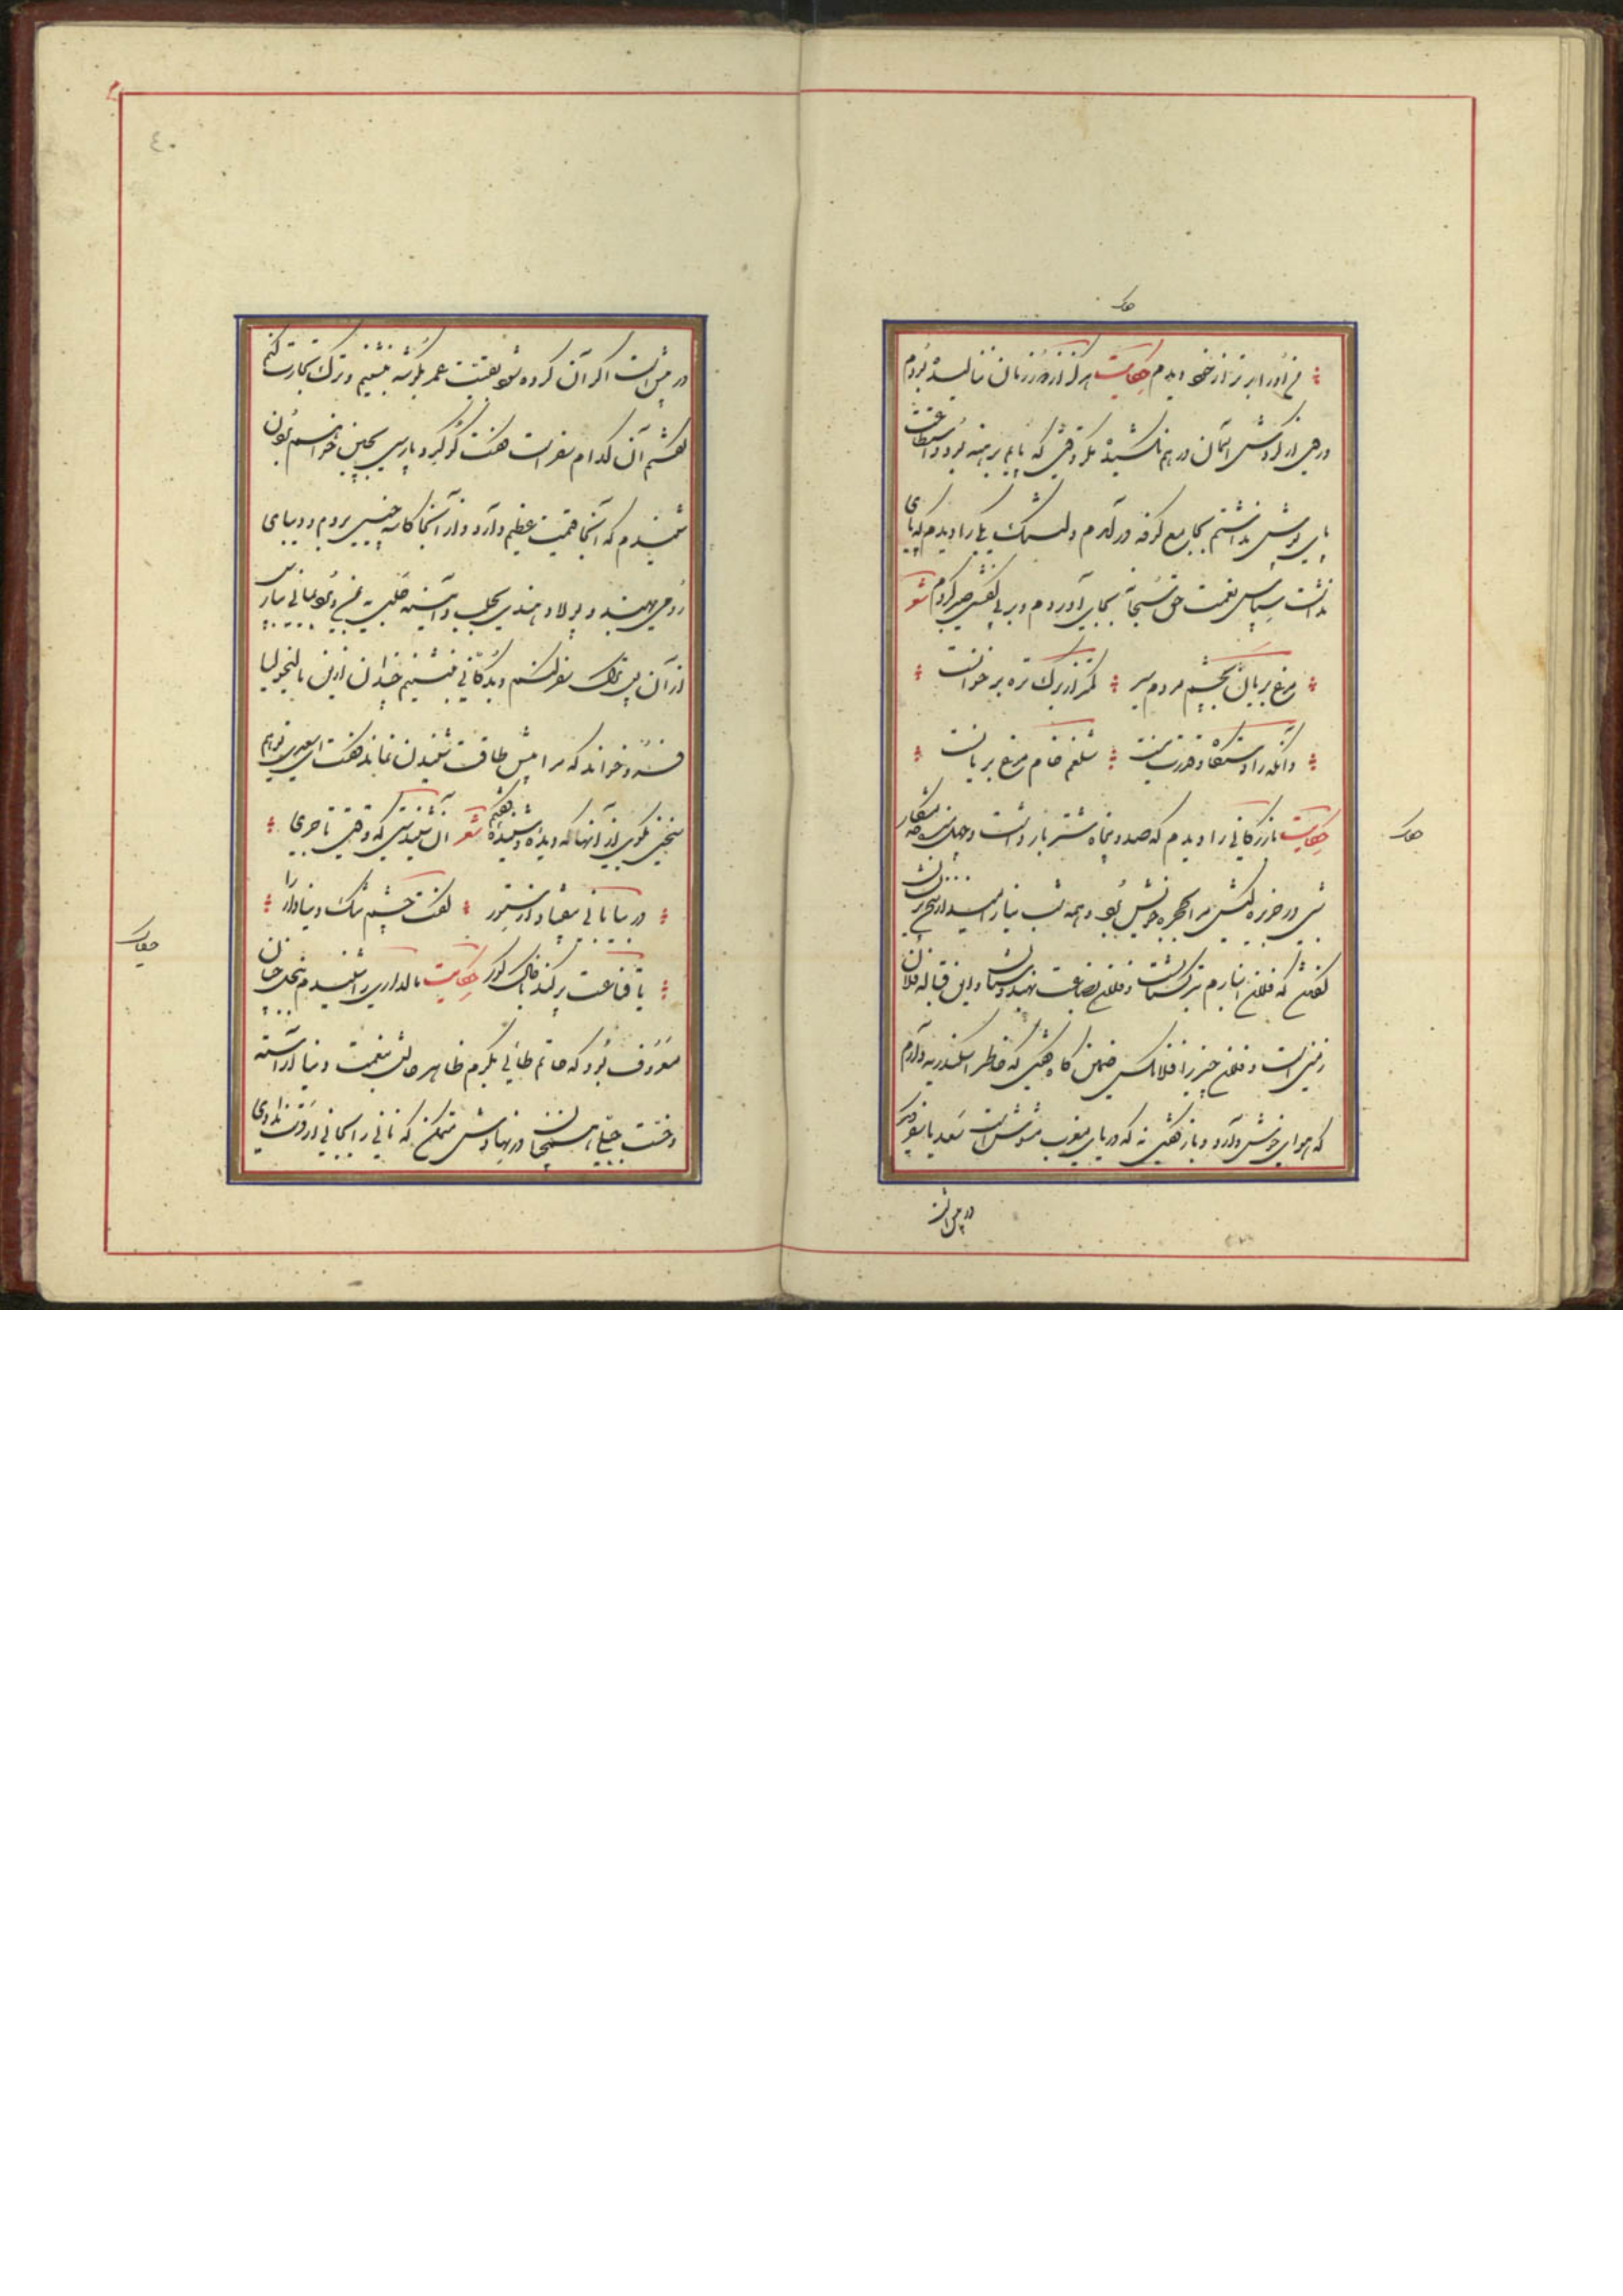 حکایت
من او را برتر از خود دیدم حکایت هرگز از دور زمان ننالیده بودم
و روی از گردش آسمان در هم نکشیده مگر وقتی که پایم برهنه بود و استطاعت
پای پوش نداشتم بجامع کوفه درآمدم دلتنگ یکی را دیدم که پای
نداشت سپاس نعمت حق سبحانه بجای آوردم و بر بی کفشی صبر کردم شعر
مرغ بریان بچشم مردم سیر کمتر از برگ تره بر خوانست
وانکه را دستگاه و قدرت نیست شلغم خام مرغ بریانست
حکایت بازرگانی را دیدم که صد و پنجاه شتر بار داشت و چهل بنده خدمتکار
حکایت
شبی در جزیره کیش مرا بحجره خویش برد و همه شب نیارامید از سخنهای پریشان
گفتن که فلان انبارم بترکستانست و فلان بضاعت بهندوستان و این قباله فلان
زمین است و فلان چیز را فلانکس ضمین گاه گفتی که خاطر اسکندریه دارم
که هوای خوش دارد و باز گفتی نه که دریای مغرب مشوش است سعدیا سفر دیگر
در پیش است
٤٠
در پیش است اگر آن کرده شود بقیت عمر بگوشه بنشینم و ترک تجارت کنم
گفتم آن کدام سفر است گفت گوگرد پارسی بچین خواهم بردن
شنیدم که آنجا قیمت عظیم دارد و از آنجا کاسه چینی بروم و دیبای
رومی بهند و پولاد هندی بحلب و آبگینه حلبی بیمن و برد یمانی بپارس
از آن پس ترک سفر کنم و بدکانی بنشینم چندان ازین مالیخولیا
فرو خواند که مرا بیش طاقت شنیدن نماند گفت ای سعدی تو هم
سخنی بگوی از آنها که دیده و شنیده گفتم شعر آن شنیدستی که وقتی تاجری
در بیابانی بیفتاد از ستور گفت چشم تنگ دنیادار را
یا قناعت پر کند یا خاک گور حکایت مالداری را شنیدم ببخل چنان
حکایت
معروف بود که حاتم طائی بکرم ظاهر حالش بنعمت دنیا آراسته
و خست جبلی همچنان در نهادش متمکن که نانی را بجانی از دست ندادی